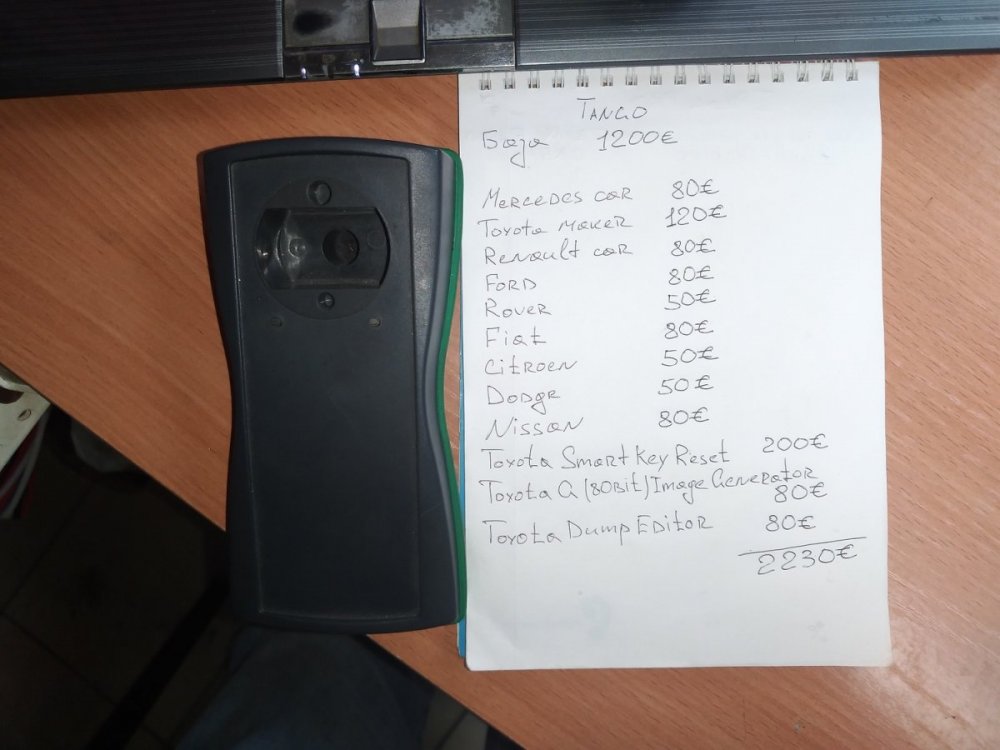 TANGO
База 1200€
Mercedes car 80€
Toyota Maker 120€
Renault car 80€
FORD 80€
Rover 50€
Fiat 80€
Citroen 50€
Dodge 50€
Nissan 80€
Toyota Smart Key Reset 200€
Toyota G (80Bit) Image Generator
80€
Toyota Dump EDitor 80€
2230€